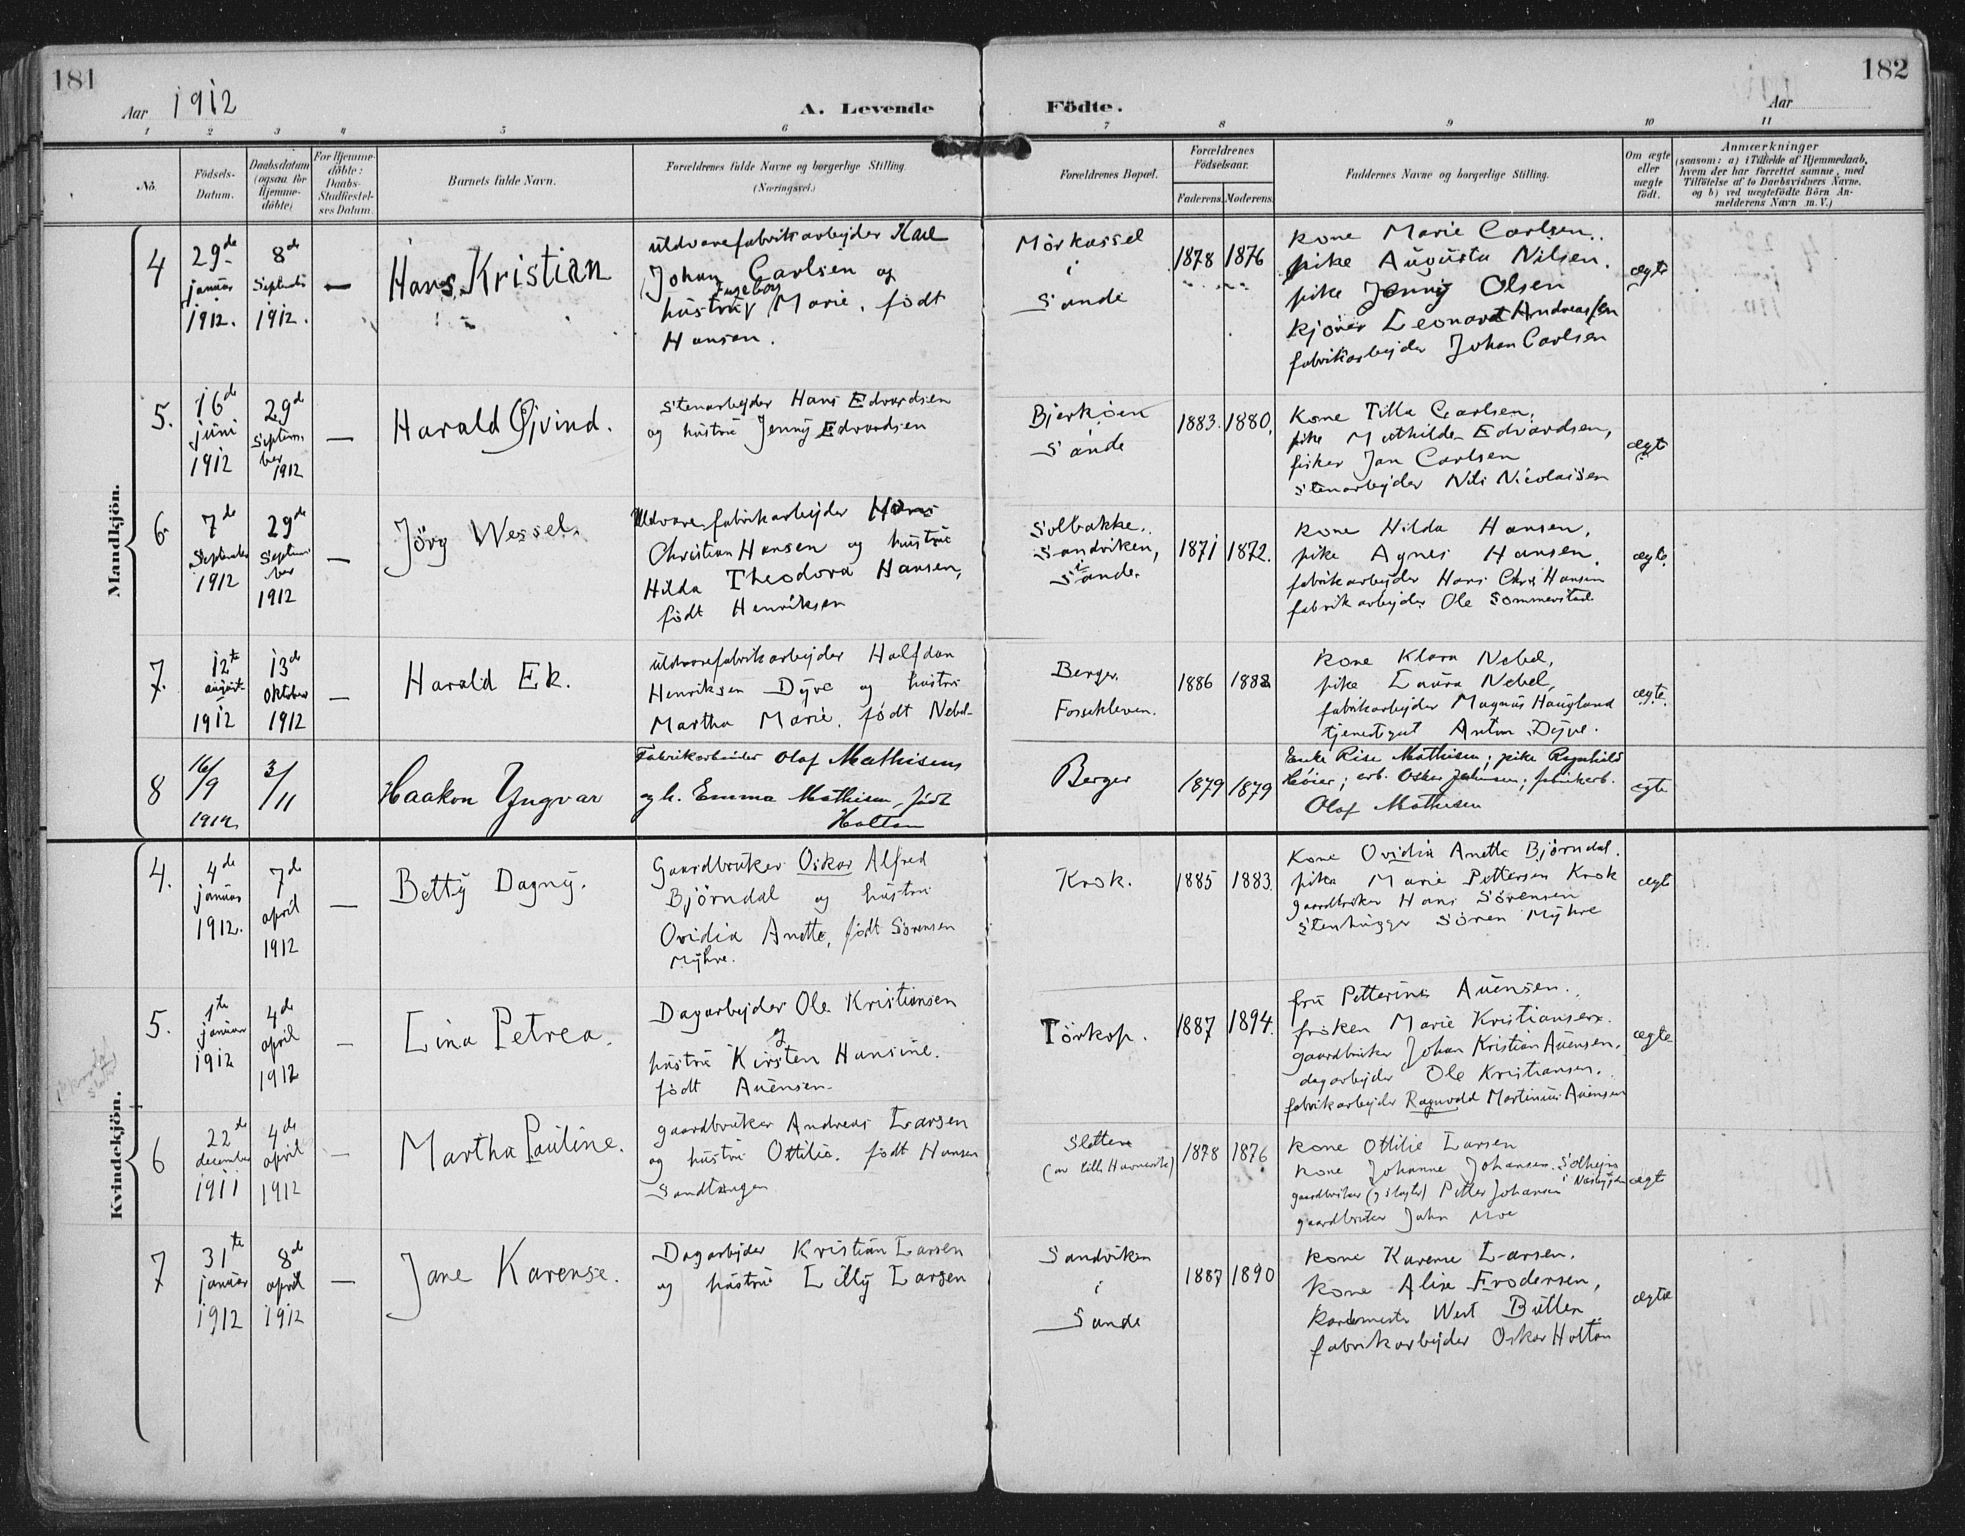 181
Aar 1912
A. Levende Födte.
Aar
182
1 2 3 4 5 6 7 8 9 10 11
No.
Födsels-
Datum.
Daabsdatum
(ogsaa for
Hjemme-
döbte)
For Hjemme-
döbte:
Daabs-
Stadfæstel-
ses Datum.
Barnets fulde Navn.
Forældrenes fulde Navne og borgerlige Stilling.
(Næringsvei.)
Forældrenes Bopæl.
Forældrenes
Födselsaar.
Faderens. Moderens.
Faddernes Navne og borgerlige Stilling.
Om ægte
eller
uægte
født.
Anmærkninger
(saasom: a) i Tilfælde af Hjemmedaab,
hvem der har forrettet samme, med
Tilföielse af to Daabsvidners Navne,
og b) ved uægtefödte Börn An-
melderens Navn m. V.)
Mandkjön.
4
29de
januar
1912.
8de
Septembr
1912.
—
Hans Kristian
uldvarefabrikarbejder Karl
Johan Carlsen og
hustru Ingeborg Marie, født
Hansen.
Mörkassel
i
Sande
1878 1876
kone Marie Carlsen.
pike Augusta Nilsen.
pike Jenny Olsen
kjörer Leonard Andreassen
fabrikarbejder Johan Carlsen
ægte
5.
16de
juni
1912
29de
Septem-
ber
1912
—
Harald Øjvind.
Stenarbejder Hans Edvardsen
og hustru Jenny Edvardsen
Bjerköen
Sande
1883. 1880.
Kone Tilla Carlsen,
pike Mathilde Edvardsen,
fisker Jan Carlsen
Stenarbejder Nils Nicolaisen
ægte
6
7de
September
1912
29de
Septem
ber
1912
—
Jörg Wessel.
Uldvarefabrikarbejder Hans
Christian Hansen og hustru
Hilda Theodora Hansen,
født Henriksen
Solbakke.
Sandviken,
i
Sande.
1871 1872.
Kone Hilda Hansen,
pike Agnes Hansen.
fabrikarbejder Hans Chris Hansen
fabrikarbejder Ole Sommerstad
ægte
7.
12te
august
1912
13de
Oktober
1912
—
Harald Ek.
uldvarefabrikarbejder Halfdan
Henriksen Dyve og hustru
Martha Marie, født Nebel
Berger.
Fossekleven.
1886 1882
Kone Klara Nebel,
pike Laura Nebel,
fabrikarbejder Magnus Haugland
tjenestgut Anton Dyve.
ægte.
8
16/9
1912.
3/11
Haakon Yngvar
Fabrikarbeider Olaf Mathisen
og h. Emma Mathisen, født
Holtan
Berger
1879 1879
Enke Rise Mathisen; pike Ragnhild
Høier; arb. Oskar Johnsen; fabrikarb.
Olaf Mathisen
ægte
Kvindekjön.
4.
4de
januar
1912.
7de
april
1912
—
Betty Dagny.
Gaardbruker Oskar Alfred
Björndal og hustru
Ovidia Anette, født Sörensen
Myhre.
Krok.
1885 1883.
Kone Ovidia Anette Björndal.
pike Marie Pettersen Krok
gaardbruker Hans Sörensen
Stenhugger Sören Myhre
ægte
5.
1te
januar
1912
4de
april
1912
—
Lina Petrea.
Dagarbejder Ole Kristiansen
og
hustru Kirsten Hansine.
født Auensen.
Törkop.
1887 1894.
fru Petterine Auensen.
fröken Marie Kristiansen.
gaardbruker Johan Kristian Auensen.
dagarbejder Ole Kristiansen.
fabrikarbejder Ragnvald Martinius Auensen
ægte
6
22de
december
1911
4de
april
1912
—
Martha Pauline.
gaardbruker Andreas Larsen
og hustru Ottilie, født Hansen
Sandtangen
Sletten
1878 1876
Kone Ottilie Larsen
Kone Johanne Johansen Solhejm
i Næsbygden
gaardbruker (og slagter) Petter Johansen
gaardbruker John Moe
ægte
7
31te
januar
1912
8de
april
1912
—
Jane Karense.
Dagarbejder Kristian Larsen
og hustru Lilly Larsen
Sandviken
i
Sande
1887 1890
Kone Karense Larsen.
Kone Alise Frodersen,
Kardemester West Butler
fabrikarbejder Oskar Holtan
ægte